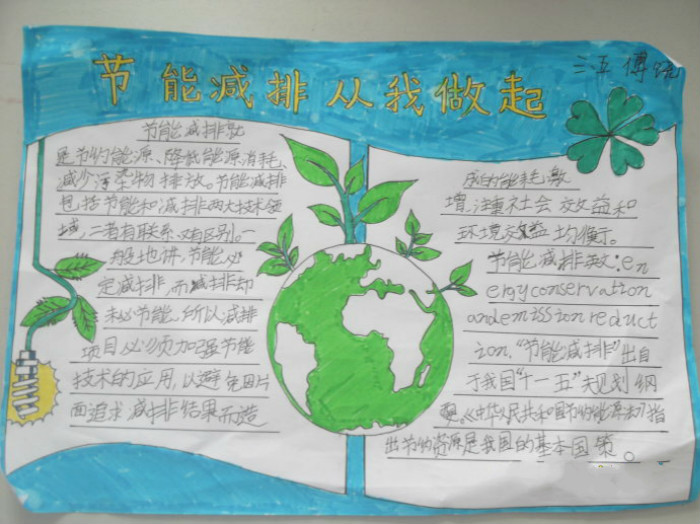 节能减排从我做起
三五 傅
节能减排就
是节约能源、降低能源消耗、
减少污染物排放。节能减排
包括节能和减排两大技术领
域,二者有联系,又有区别。一
般地讲,节能必
定减排,而减排却
未必节能,所以减排
项目必须加强节能
技术的应用,以避免因片
面追求减排结果而造
成的能耗激
增,注重社会效益和
环境效益均衡。
节能减排英文:en
ergyconservation
andemissionreduct
ion."节能减排"出自
于我国"十一五"规划纲
要。《中华人民共和国节约能源法》指
出节约资源是我国的基本国策。